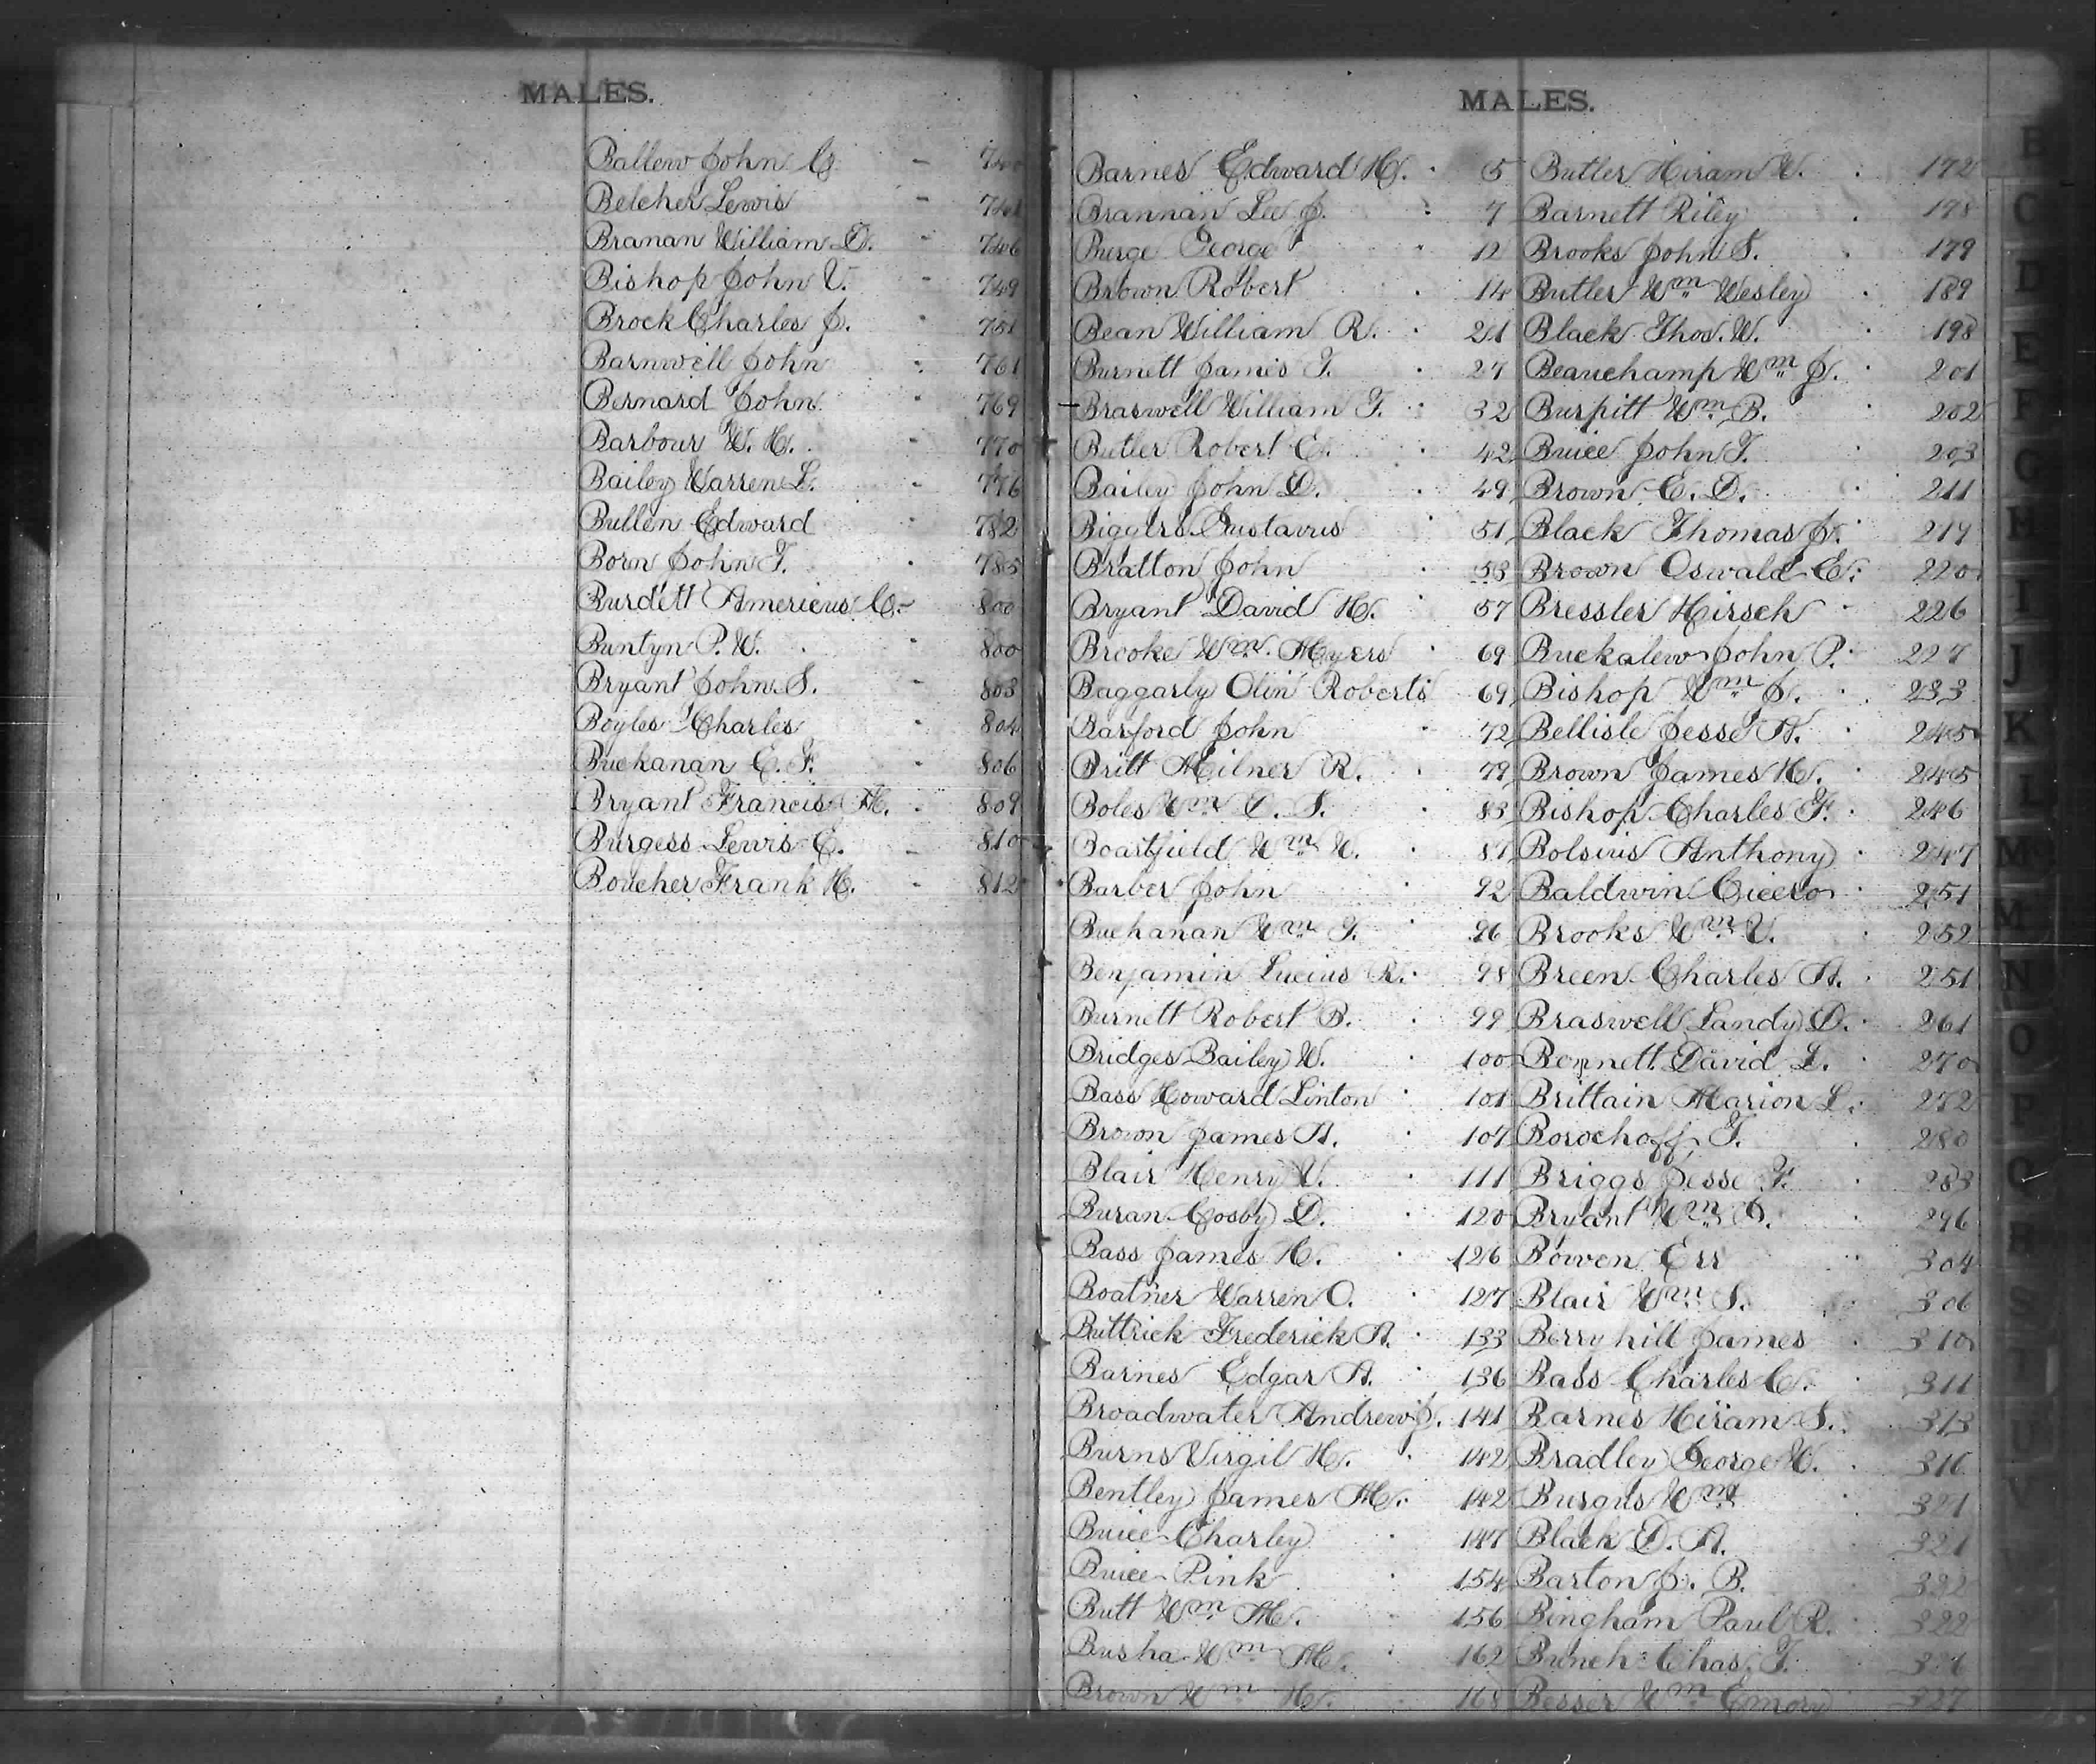 MALES.
Ballew John C. - 740
Belcher Lewis - 741
Branan William D. - 746
Bishop John V. - 749
Brock Charles J. - 751
Barnwell John - 761
Bernard John - 769
Barbour W. H. - 770
Bailey Warren L. - 776
Bullen Edward - 782
Born John T. - 785
Burdett Americus C. - 800
Buntyn P. W. - 800
Bryant John S. - 803
Boyles Charles - 804
Buckanan E. F. - 806
Bryant Francis M. - 809
Burgess Lewis E. - 810
Boucher Frank H. - 812
MALES.
Barnes Edward H. 5
Brannan Lee J. 7
Burge George 12
Brown Robert 14
Bean William R. 21
Burnett James T. 27
Braswell William T. 32
Butler Robert E. 42
Bailey John D. 49
Biggers Gustavus 51
Bratton John 53
Bryant David H. 57
Brooke Wm. Myers 69
Baggarly Olin Roberts 69
Barford John 72
Britt Milner R. 79
Boles Wm D. S. 83
Boartfield Wm W. 87
Barber John 92
Buchanan Wm T. 96
Benjamin Lucius R. 98
Burnett Robert B. 99
Bridges Bailey W. 100
Bass Howard Linton 101
Brown James A. 107
Blair Henry V. 111
Buran Cosby D. 120
Bass James H. 126
Boatner Warren O. 127
Buttrick Frederick A. 133
Barnes Edgar A. 136
Broadwater Andrew J. 141
Burns Virgil H. 142
Bentley James M. 142
Buice Charley 147
Buice Pink 154
Butt Wm M. 156
Busha Wm M. 162
Brown Wm H. 168
Butler Hiram W. 172
Barnett Riley 198
Brooks John S. 179
Butler Wm Wesley 189
Black Thos. W. 198
Beauchamp Wm J. 201
Burpitt Wm B. 202
Buice John T. 203
Brown E. D. 211
Black Thomas J. 219
Brown Oswald E. 220
Bressler Hirsch 226
Buckalew John P. 227
Bishop Wm J. 233
Bellisle Jesse A. 245
Brown James H. 245
Bishop Charles F. 246
Bolsius Anthony 247
Baldwin Cicero 251
Brooks Wm V. 252
Breen Charles A. 251
Braswell Landy D. 261
Bennett David L. 270
Brittain Marion L. 272
Borochoff, T. 280
Briggs Jesse F. 283
Bryant Wm D. 296
Bowen Err 304
Blair Wm S. 306
Berryhill James 310
Bass Charles C. 311
Barnes Hiram S. 313
Bradley George W. 316
Burgus Wm 321
Black D. A. 321
Barton J. B. 322
Bingham Paul R. 322
Bunch Chas. T.
Besser Wm Emory 327
B
C
D
E
F
G
H
I
J
K
L
M
M
N
O
P
Q
R
S
T
U
V